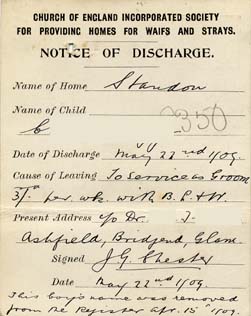 CHURCH OF ENGLAND INCORPORATED SOCIETY
FOR PROVIDING HOMES FOR WAIFS AND STRAYS.
NOTICE OF DISCHARGE.
Name of Home Standon
Name of Child
350
Date of Discharge May 22nd 1/09.
Cause of Leaving To service as Groom
3/- per wk. with B. L & W.
Present Address c/o Dr.
Ashfield, Bridgend, Glam.
Signed J G Chester
Date May 22nd 1/09.
This boy's name was removed
from the Register Apr. 15th 1/09.